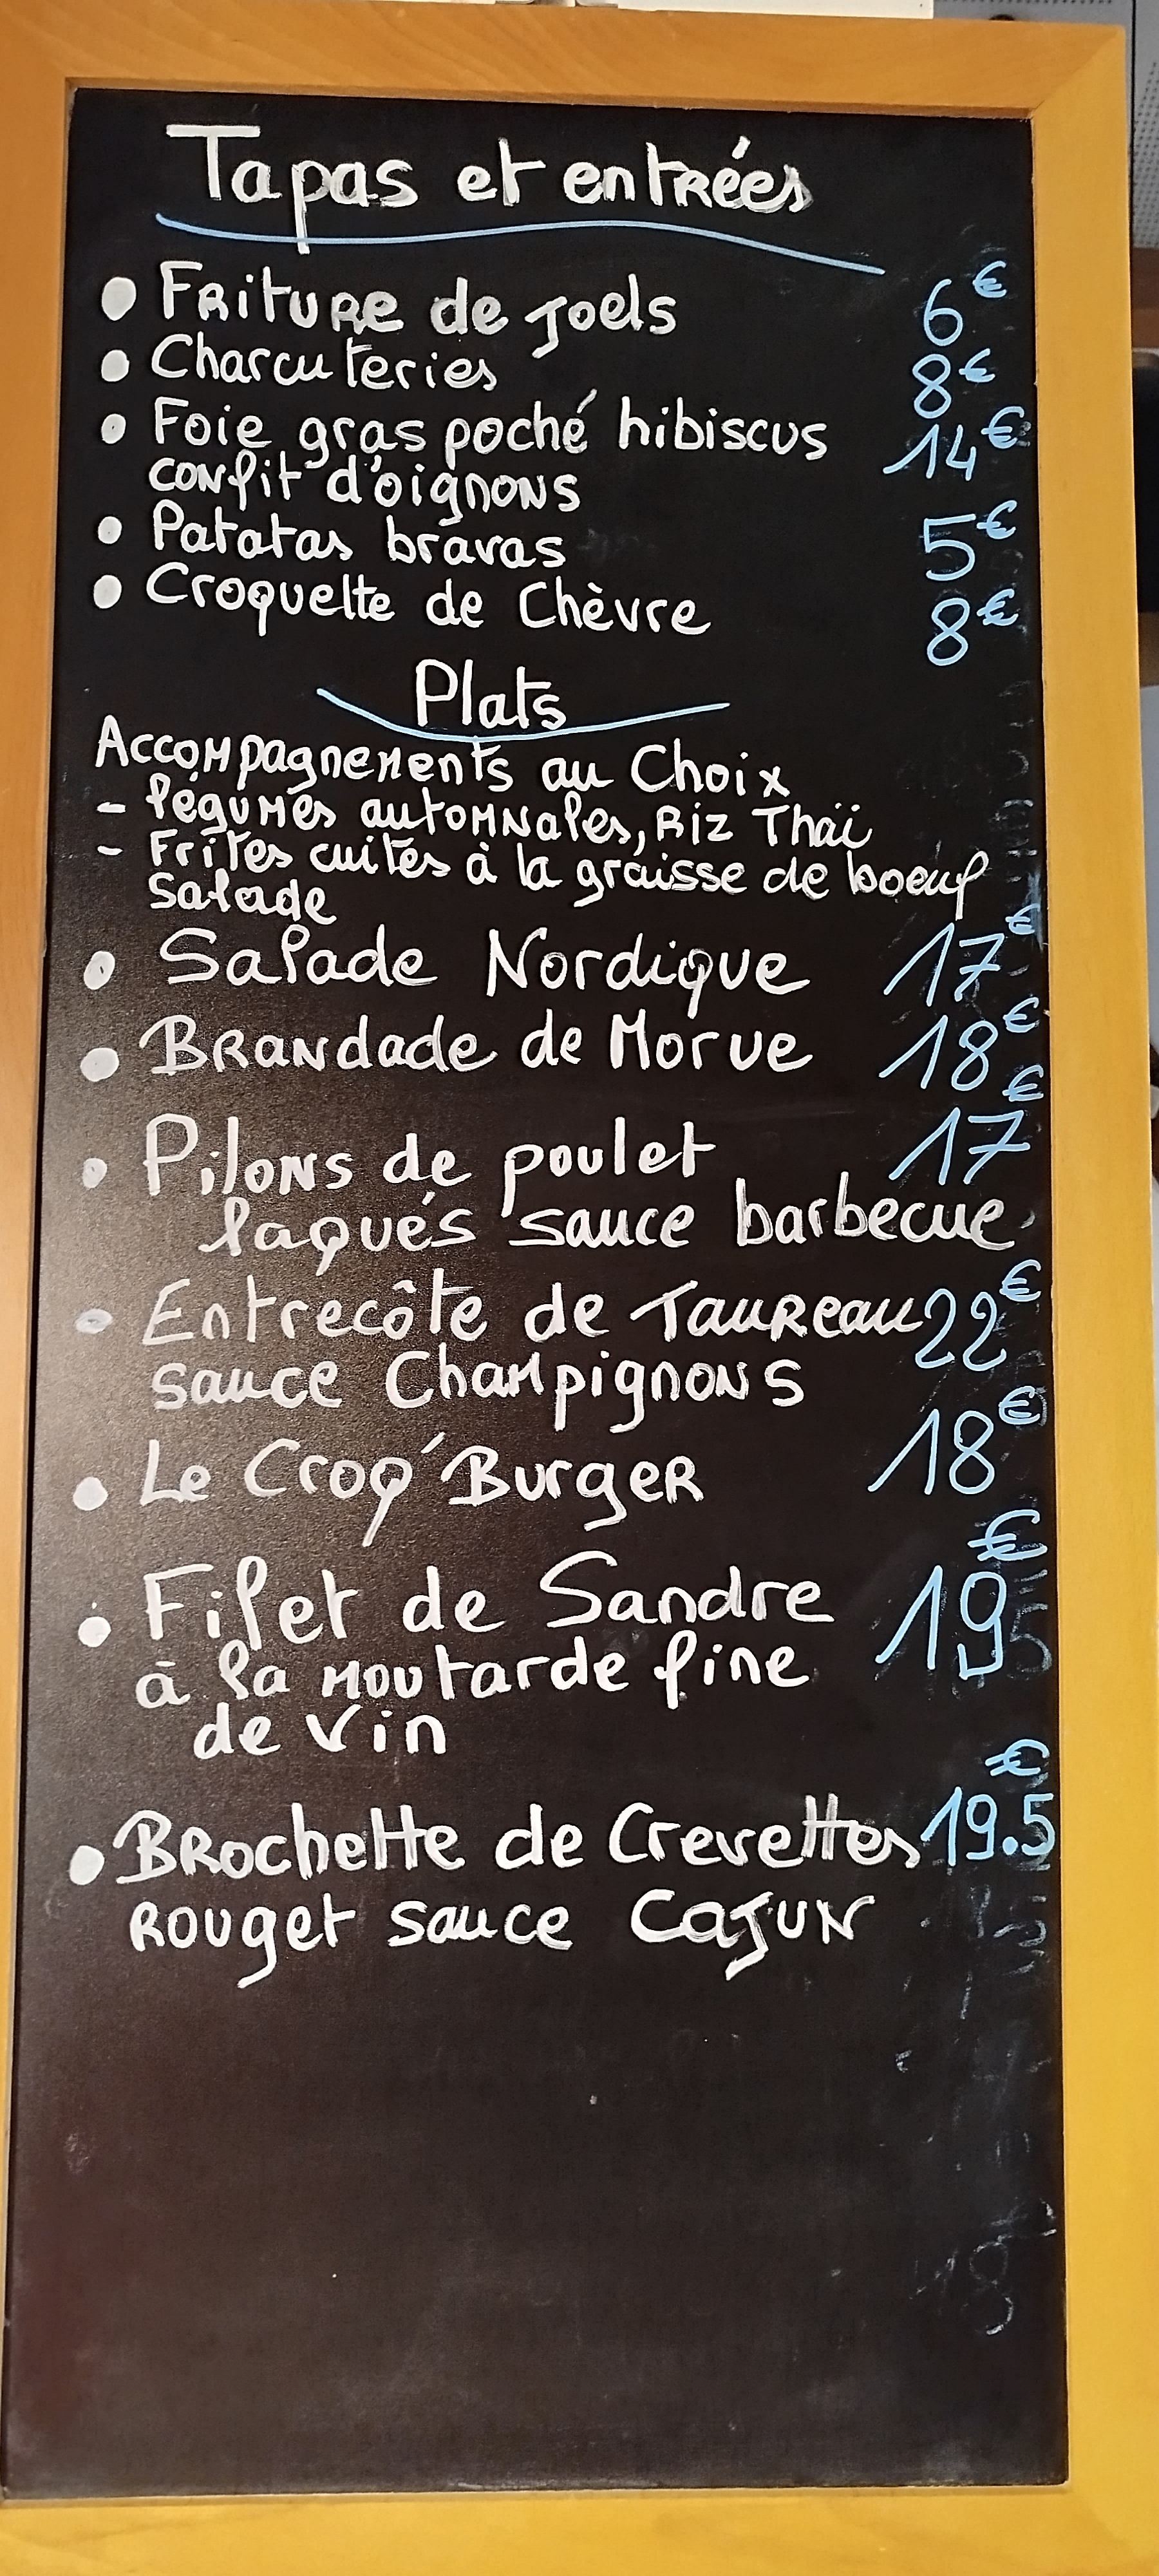 Tapas et entrées
• Friture de Joels 6€
• Charcuteries 8€
• Foie gras poché hibiscus 14€
confit d'oignons
• Patatas bravas 5€
• Croquette de Chèvre 8€
Plats
Accompagnements au Choix
- légumes automnales, Riz Thaï
- Frites cuites à la graisse de boeuf
salade
• Salade Nordique 17€
• Brandade de Morue 18€
• Pilons de poulet 17€
laqués sauce barbecue
• Entrecôte de Taureau 22€
sauce Champignons
• Le Croq'Burger 18€
• Filet de Sandre 19€
à la moutarde fine
de vin
• Brochette de Crevettes 19.5€
Rouget sauce Cajun